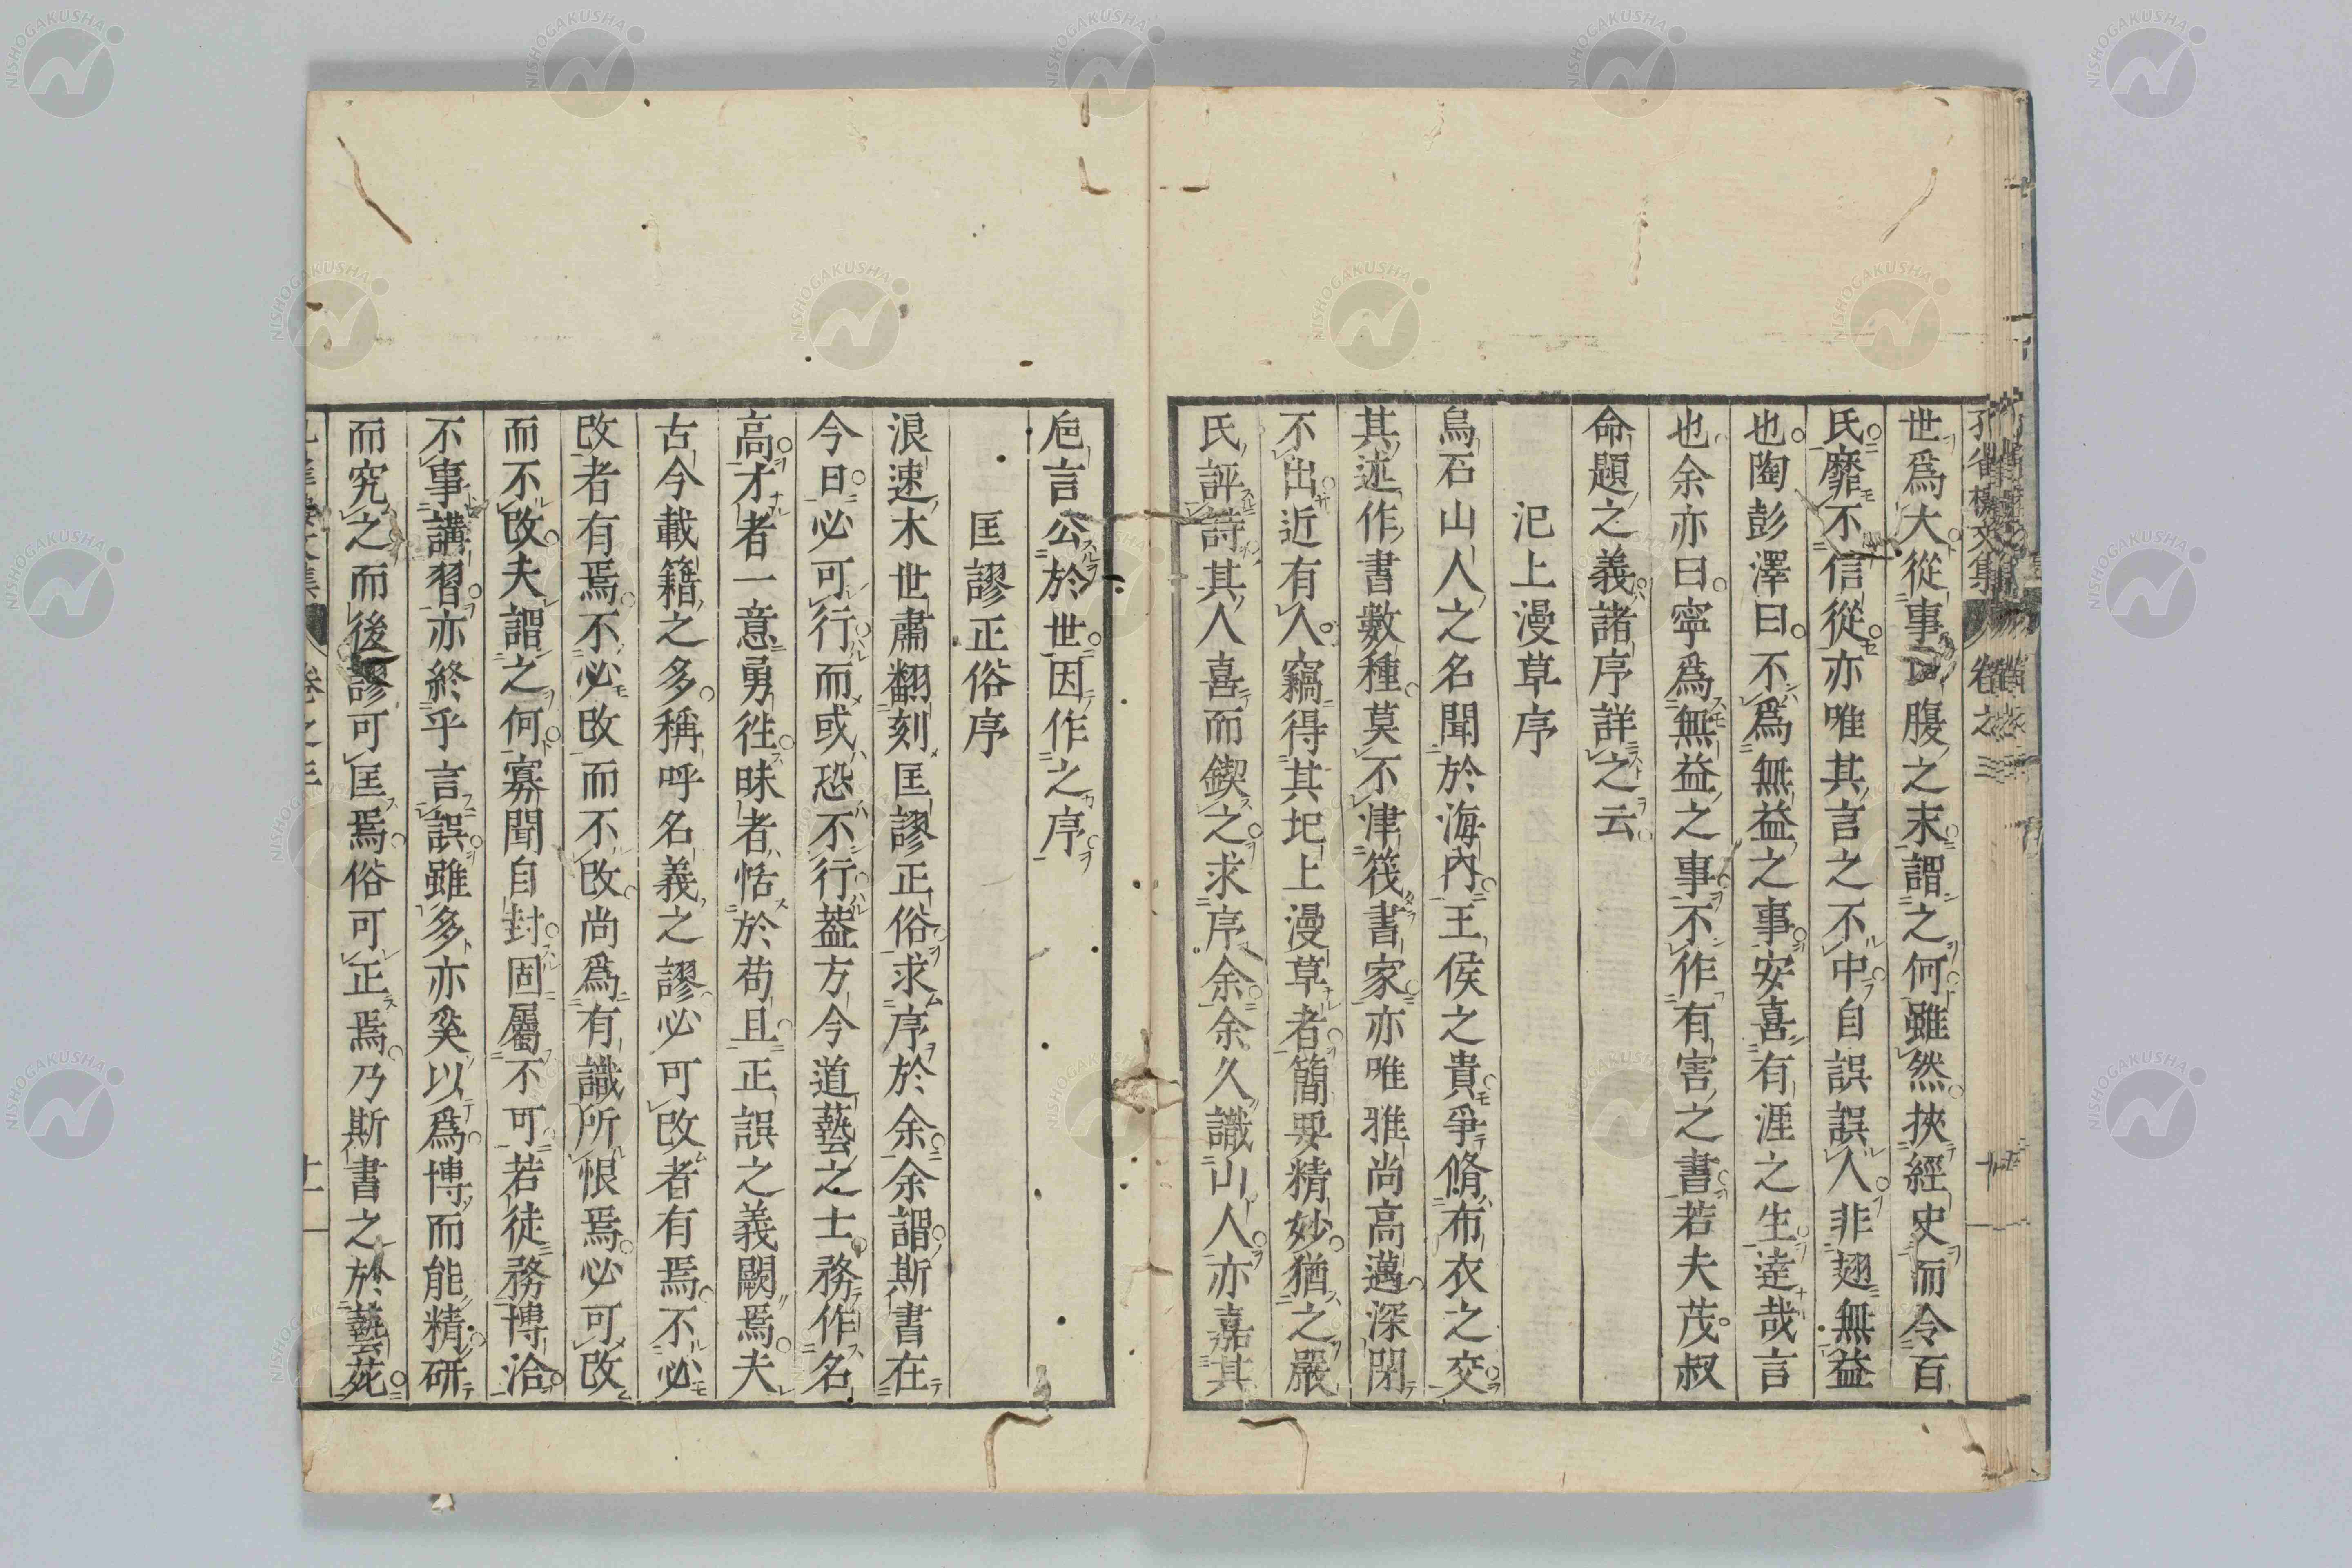 孔雀樓文集 卷之三
世爲大從事口腹之末謂之何雖然挾經史而令百
氏靡不信從亦唯其言之不中自誤誤人非翅無益
也陶彭澤曰不爲無益之事安喜有涯之生達哉言
也余亦曰寧爲無益之事不作有害之書若夫茂叔
命題之義諸序詳之云
汜上漫草序
烏石山人之名聞於海內王侯之貴爭脩布衣之交
其述作書數種莫不津筏書家亦唯雅尚高邁深閉
不出近有人竊得其圯上漫草者簡要精妙猶之嚴
氏評詩其人喜而鍥之求序余余久識山人亦嘉其
巵言公於世因作之序
匡謬正俗序
浪速木世肅翻刻匡謬正俗求序於余余謂斯書在
今日必可行而或恐不行葢方今道藝之士務作名
高才者一意勇徃昧者恬於苟且正誤之義闕焉夫
古今載籍之多稱呼名義之謬必可改者有焉不必
改者有焉不必改而不改尚爲有識所恨焉必可改
而不改夫謂之何寡聞自封固屬不可若徒務博洽
不事講習亦終乎言誤雖多亦奚以爲博而能精研
而究之而後謬可匡焉俗可正焉乃斯書之於藝苑
卷之三 十一
NISHOGAKUSHA